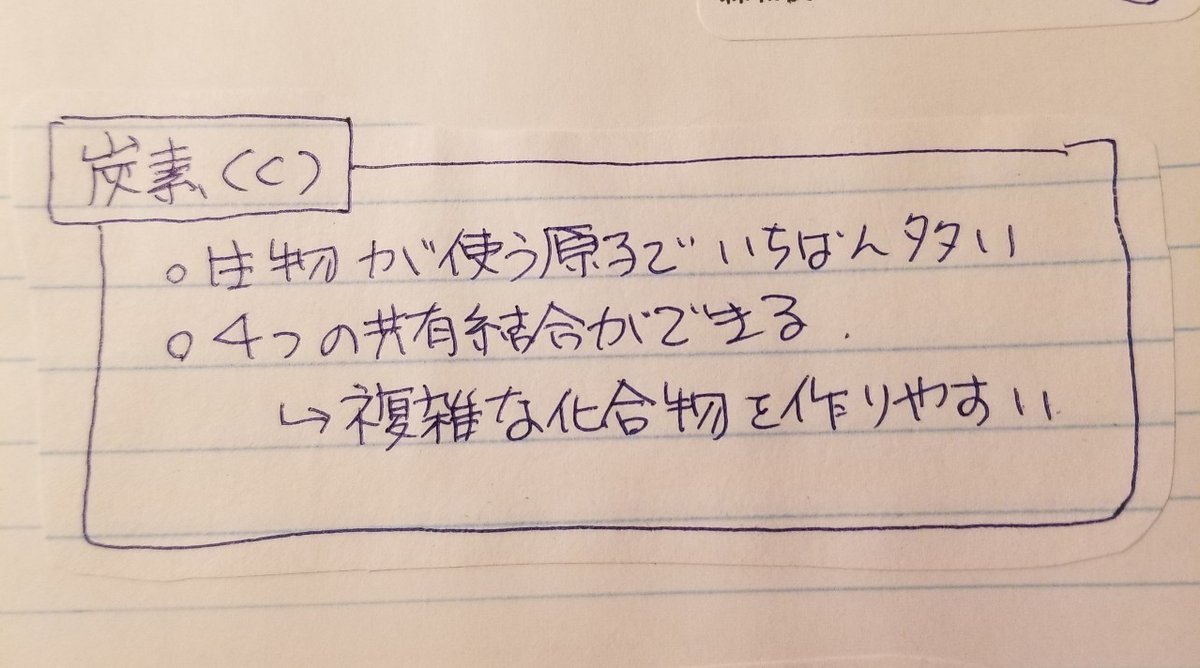 炭素(C)
○生物が使う原子でいちばん多い
○4つの共有結合ができる.
↳複雑な化合物を作りやすい